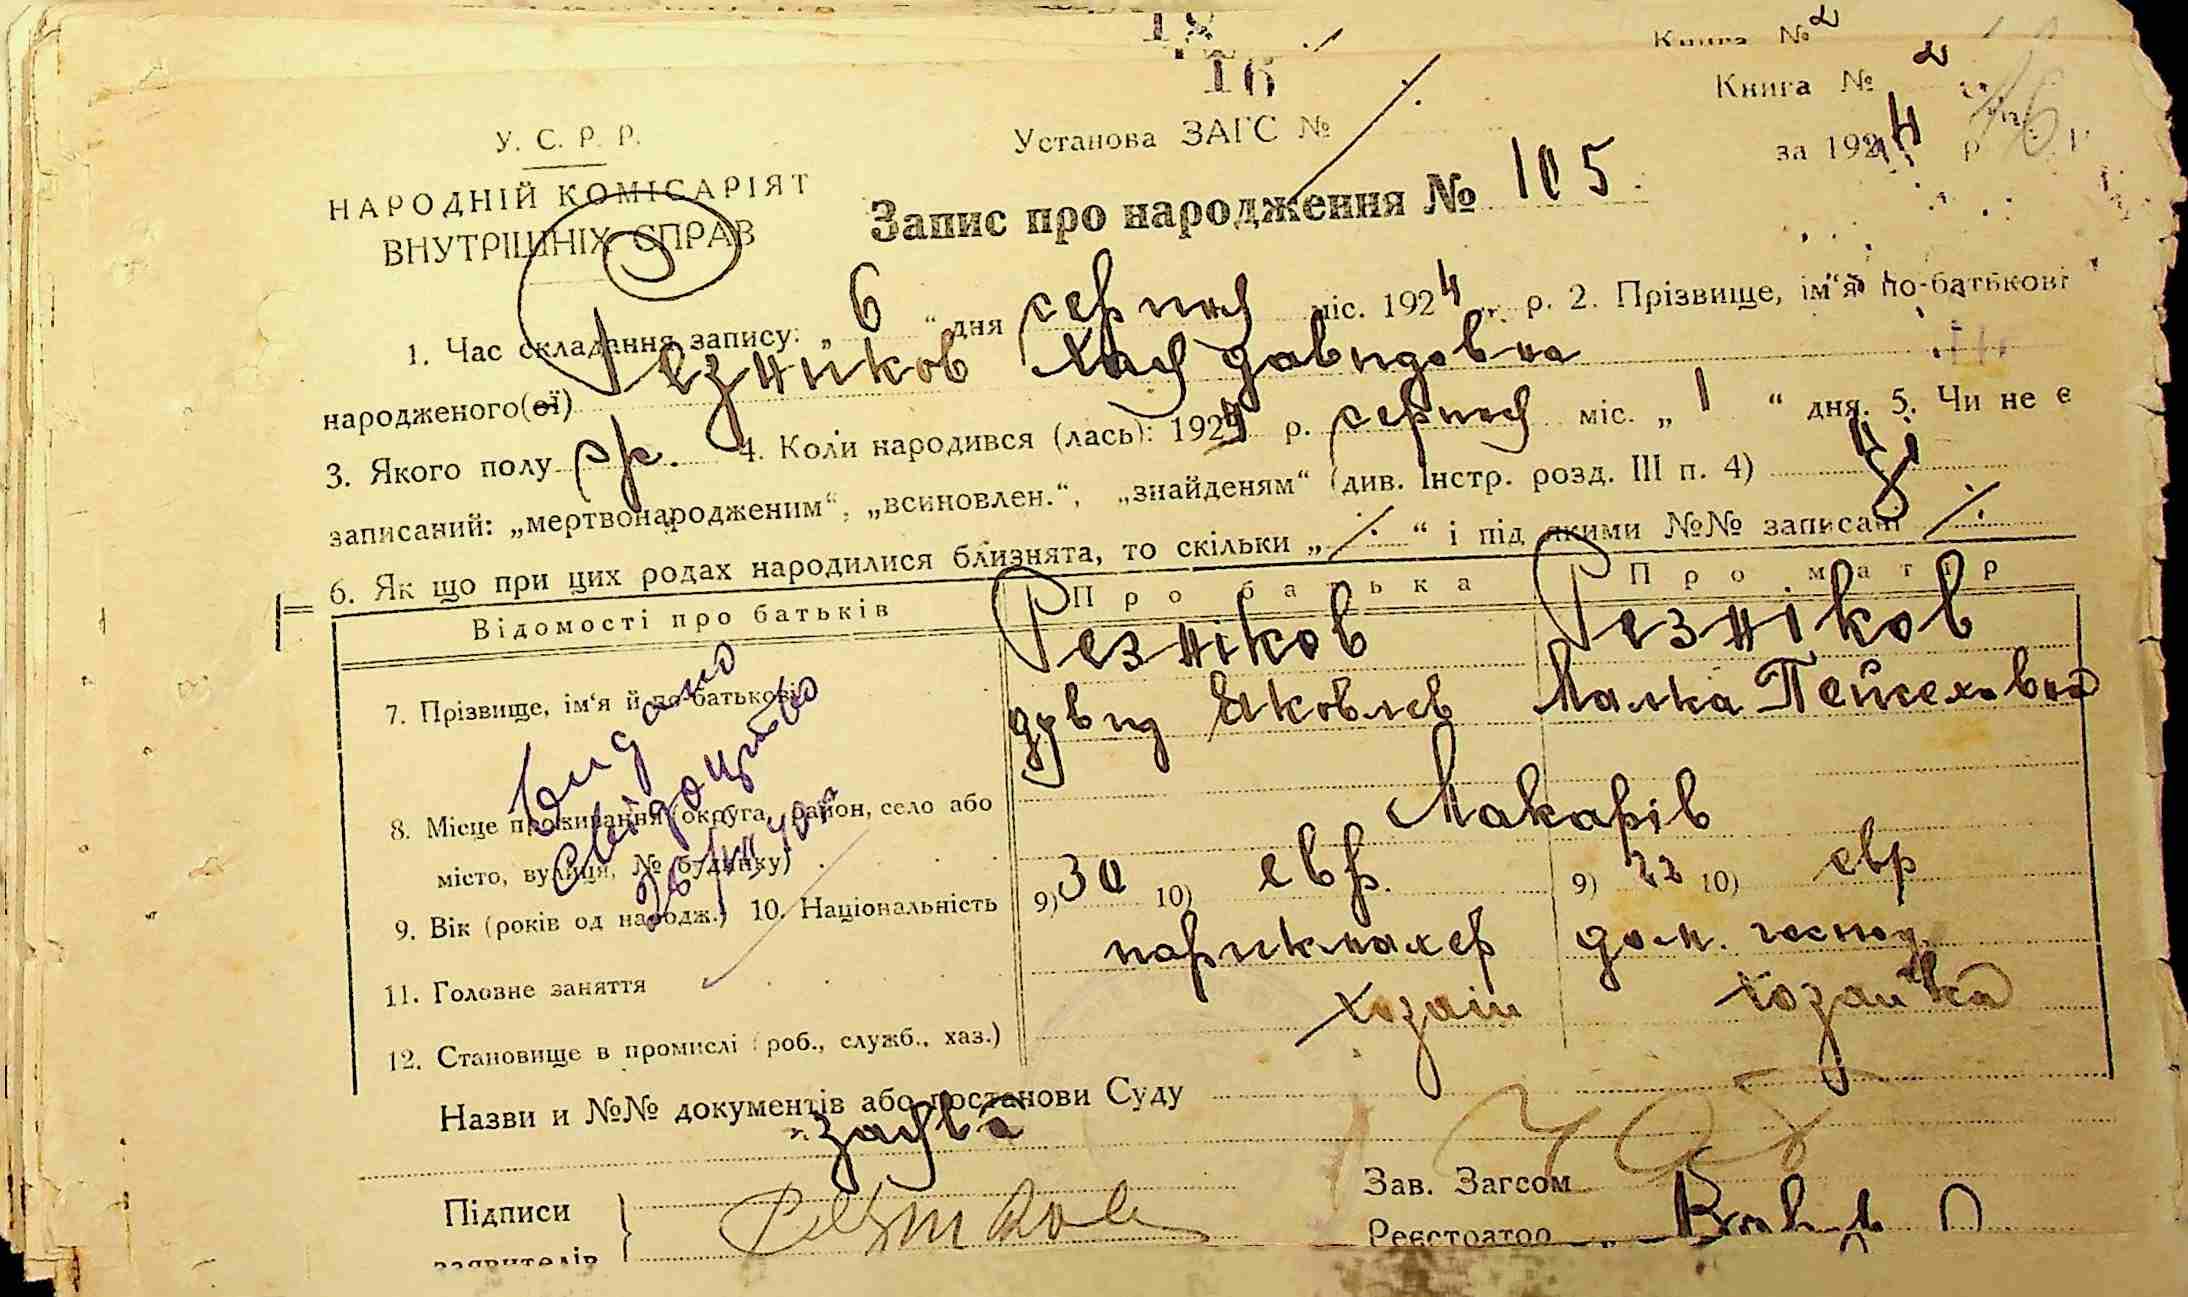 18
Книга № 2
16
Книга № 2
У. С. Р. Р.
Установа ЗАГС №
за 1924 р
НАРОДНІЙ КОМІСАРІЯТ
ВНУТРІШНІХ СПРАВ
Запис про народження № 105
1. Час складання запису: „ 6 “ дня серпня міс. 1924 р. 2. Прізвище, ім‘я по-батькові
народженого(ої) Резников Хая Давидовна
3. Якого полу 4. Коли народився (лась): 1924 р. серпня міс. „ 1 “ дня. 5. Чи не є
записаний: „мертвонародженим“, „всиновлен.“, „знайденям“ (див. Інстр. розд. III п. 4)
6. Як що при цих родах народилися близнята, то скільки „ “ і під якими №№ записані
Відомості про батьків Про батька Про матір
Резніков Резніков
7. Прізвище, ім‘я й по-батькові Яковлев Малка
Видано
свідоцтво
8. Місце проживання (округа, район, село або Макарів
місто, вулиця, № будинку)
9. Вік (років од народж.) 10. Національність 9) 30 10) евр. 9) 22 10) евр
11. Головне заняття парикмахер дом. господ.
12. Становище в промислі (роб., служб., хаз.) хозаін хозаика
Назви и №№ документів або постанови Суду
заява
Зав. Загсом
Підписи Резников
Реєстратор
заявителів